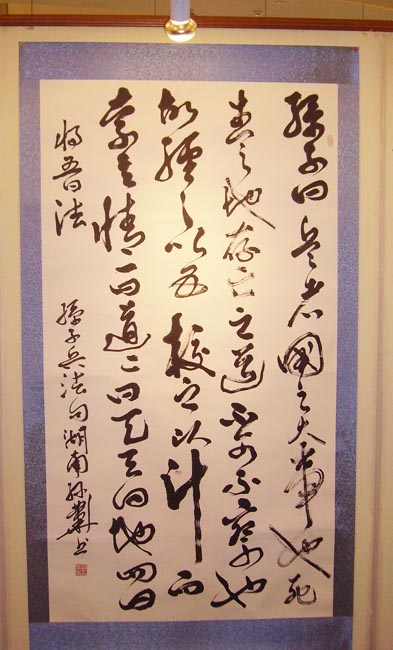 孫子曰兵者國之大事也死
生之地存亡之道不可不察也
故經之以五校之以計而
索其情一曰道二曰天三曰地四曰
将五曰法
孫子兵法句湖南孫书